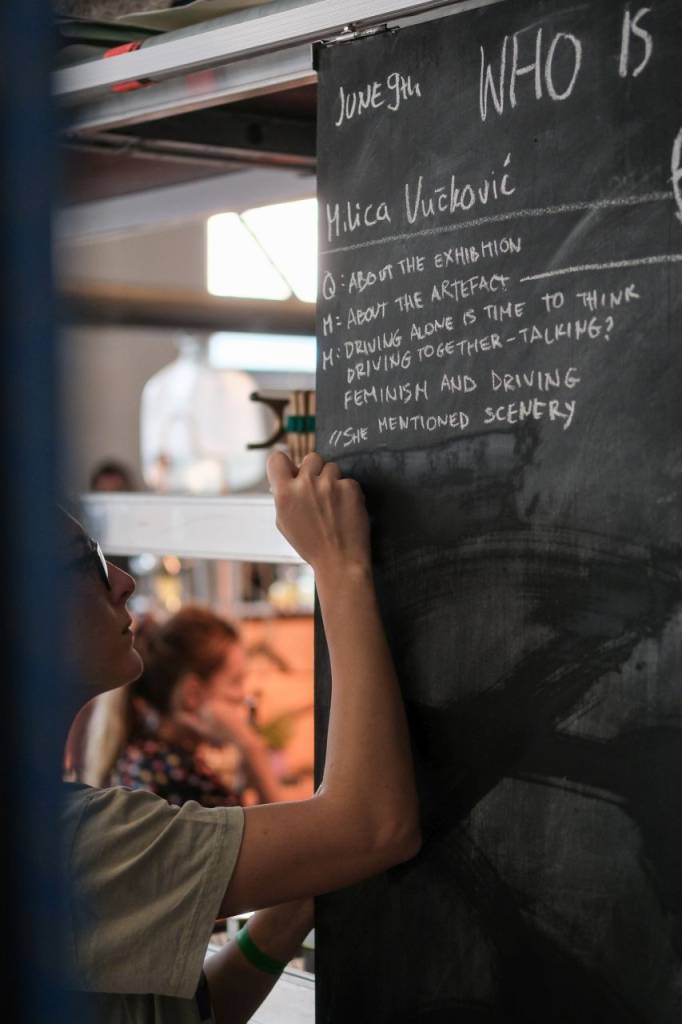 JUNE 9TH. WHO IS
Milica Vučković
Q: ABOUT THE EXHIBITION
M: ABOUT THE ARTEFACT
M: DRIVING ALONE IS TIME TO THINK
DRIVING TOGETHER - TALKING?
FEMINISM AND DRIVING
//SHE MENTIONED SCENERY